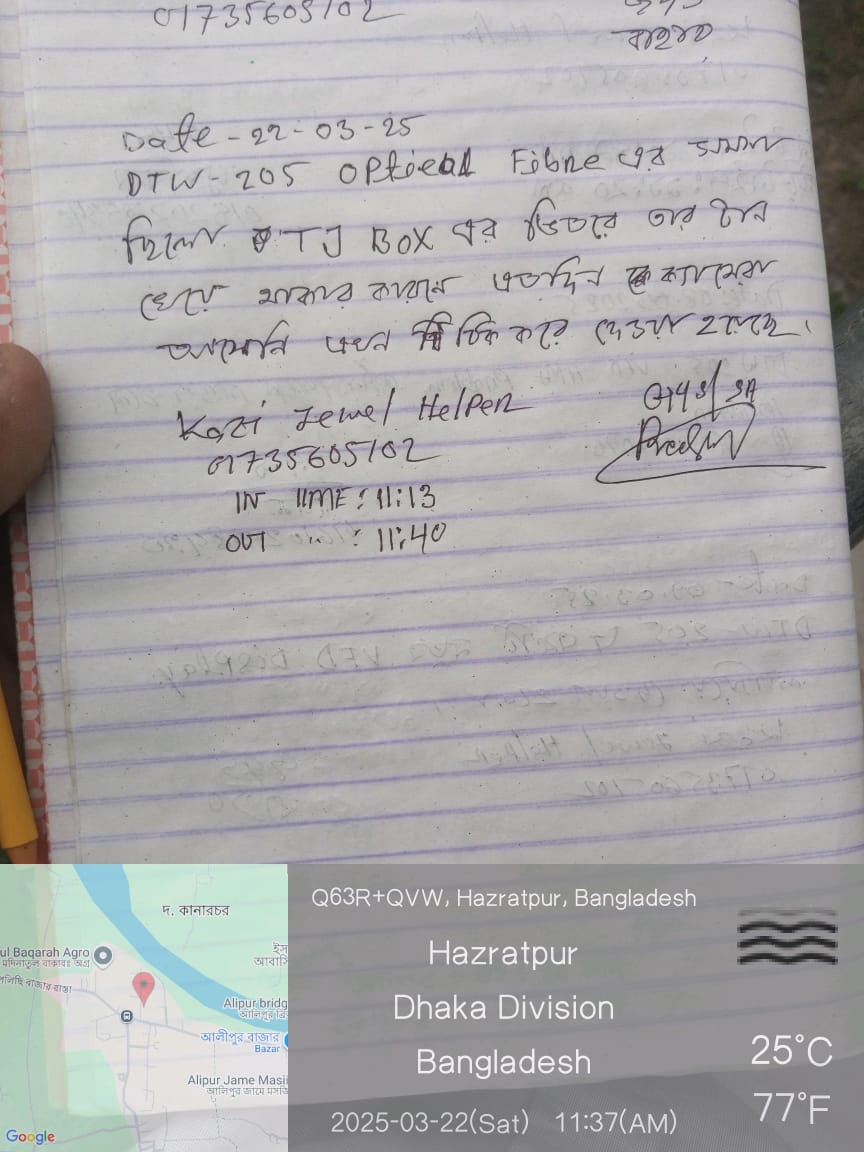 01735605102
Date - 22-03-25
DTW-205 OPtical Fibre এর সমস্যা
ছিলো TJ BOX এর ভিতরে তার টান
খেয়ে থাকার কারনে এতদিন ক্যামেরা
আসেনি এখন ঠিক করে দেওয়া হয়েছে।
Kazi Jewel Helper
01735605102
IN TIME: 11:13
OUT ..: 11:40
দ. কানারচর
ul Baqarah Agro
Alipur bridg
আলীপুর বাজার
Bazar
Alipur Jame Masji
আলিপুর জামে মসজি
Google
Q63R+QVW, Hazratpur, Bangladesh
Hazratpur
Dhaka Division
Bangladesh
2025-03-22(Sat) 11:37(AM)
25°C
77°F